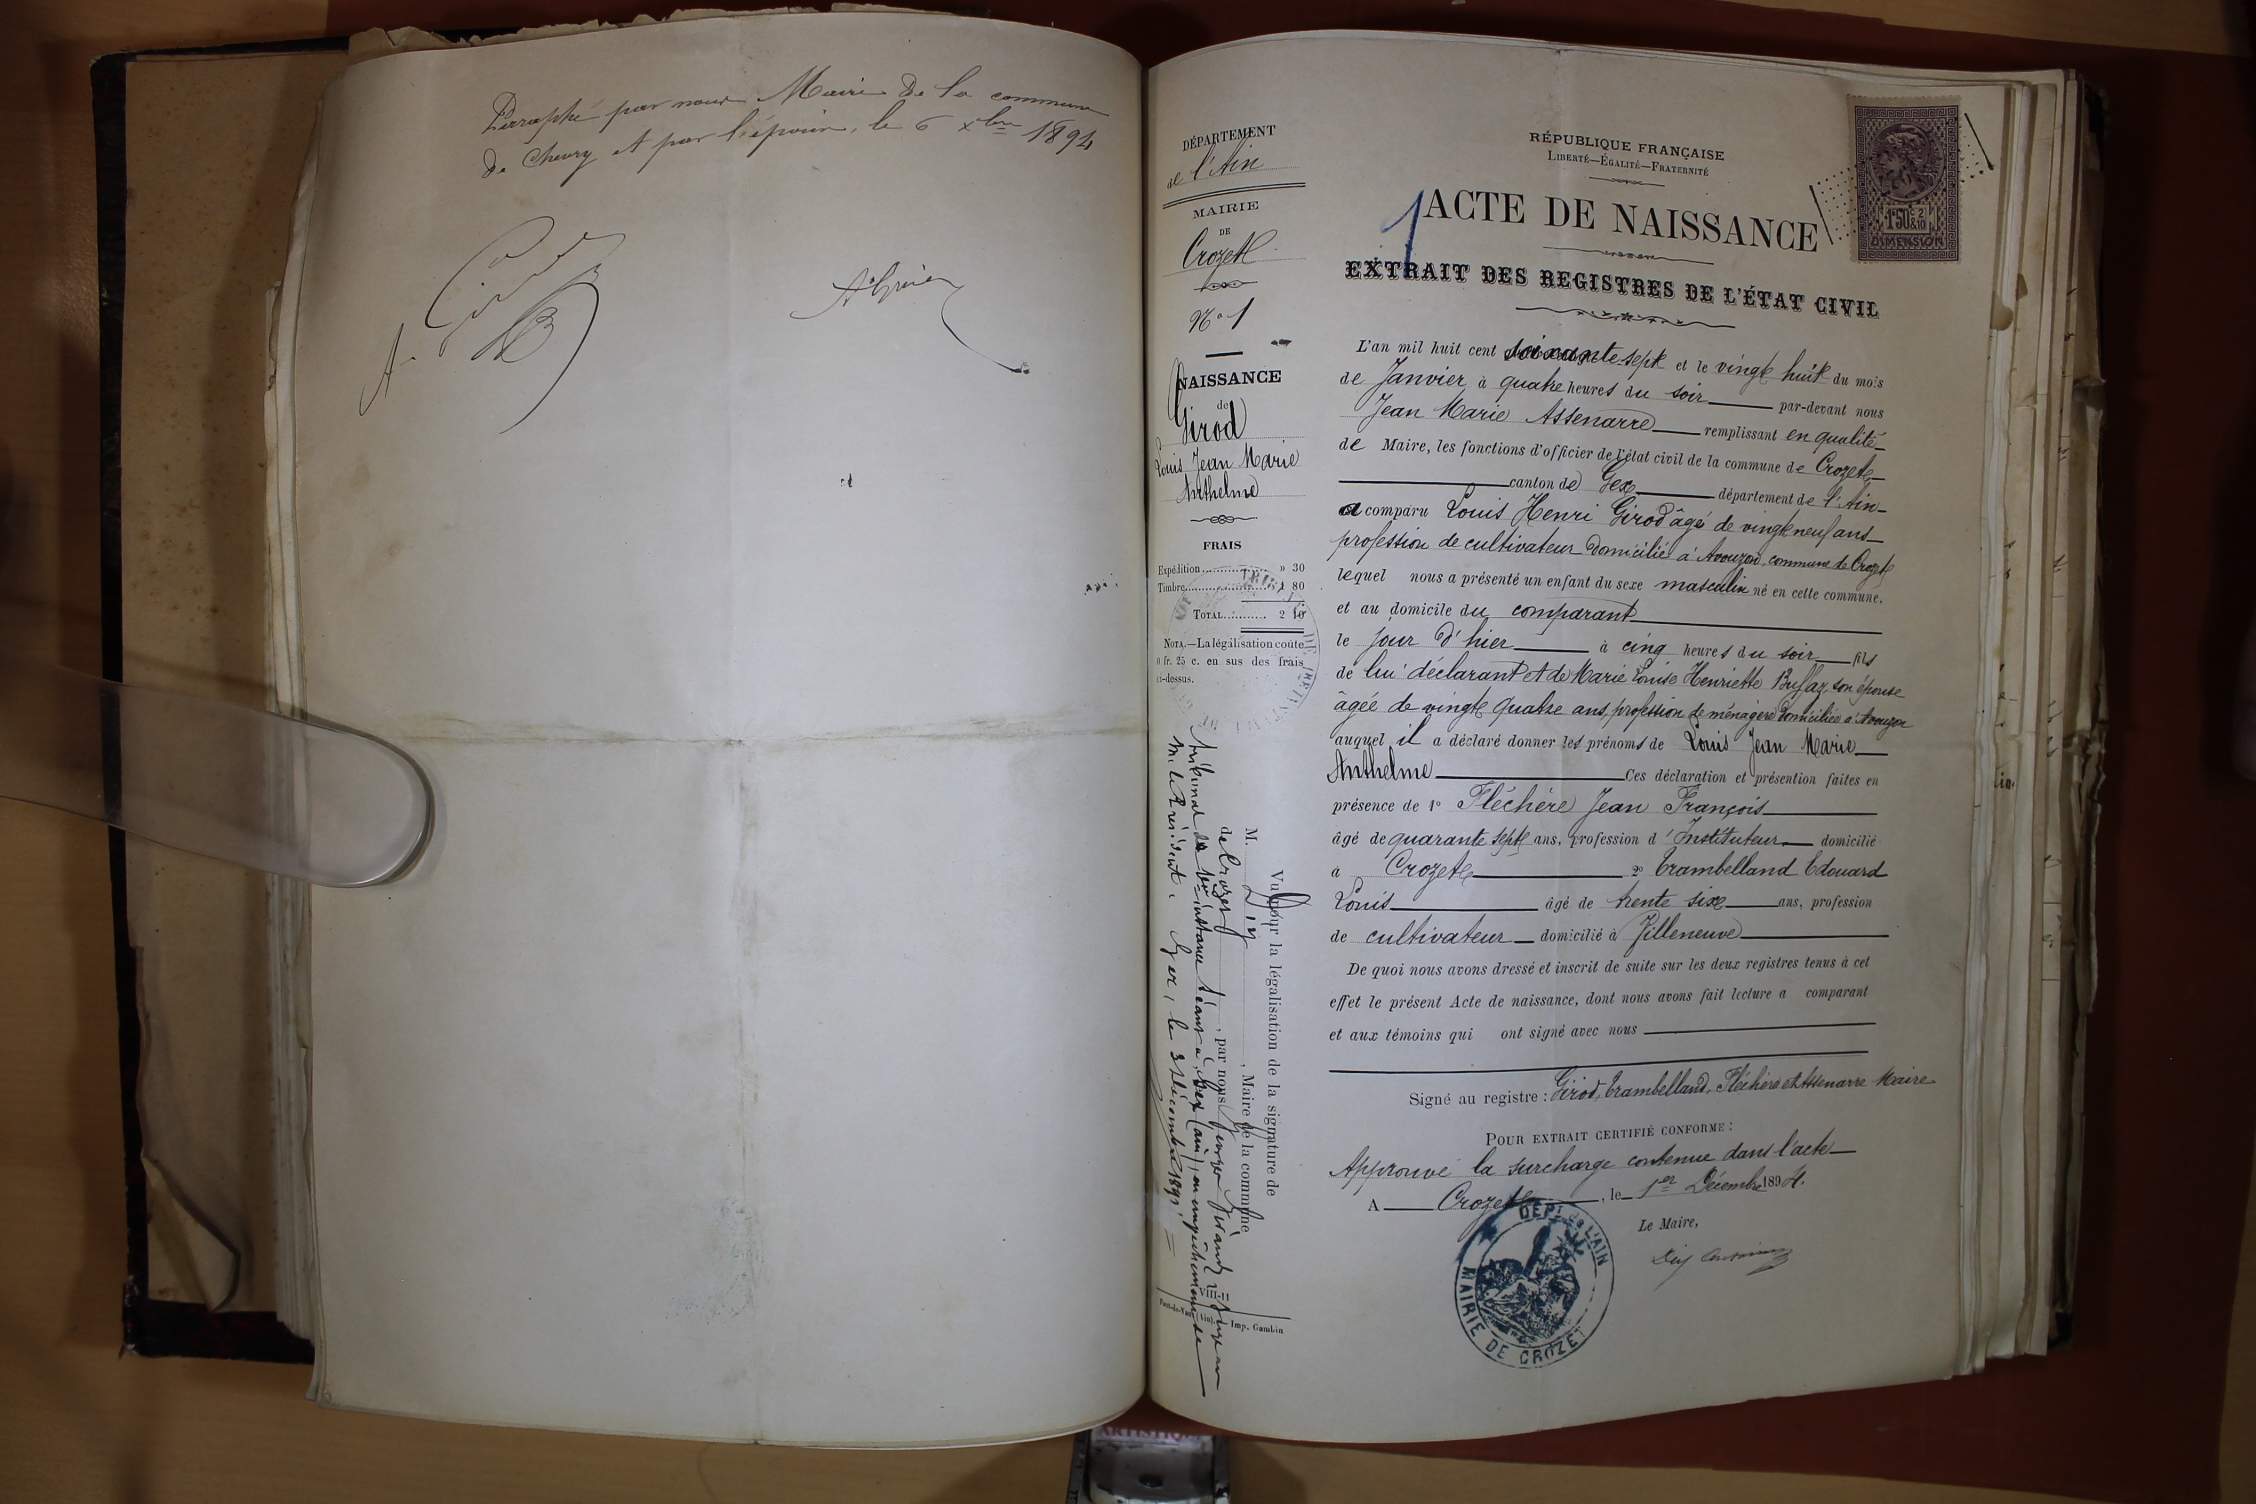 Parraphé par nous Maire de la commune
de Chevry et par l'époux, le 6 xbre 1894
A. Girod
DÉPARTEMENT
de l'Ain
MAIRIE
DE
Crozet
N° 1
NAISSANCE
de
Girod
Louis Jean Marie
Anthelme
FRAIS
Expédition.......... » 30
Timbre.......... 1 80
TOTAL.......... 2 10
NOTA.—La légalisation coûte
0 fr. 25 c. en sus des frais
ci-dessus.
Vu pour la légalisation de la signature de
M. Diy, Maire de la commune
de Crozet, par nous
tribunal de 1ère instance séant à Gex (ain), en empêchement de
M. le Président. Gex, le 3 Décembre 1894
VIII-11
Imp. Gambin
RÉPUBLIQUE FRANÇAISE
LIBERTÉ—ÉGALITÉ—FRATERNITÉ
1
ACTE DE NAISSANCE
1f50c 2/10
DIMENSION
EXTRAIT DES REGISTRES DE L'ÉTAT CIVIL
L'an mil huit cent soixante sept et le vingt huit du mois
de Janvier à quatre heures du soir par-devant nous
Jean Marie Assenarre remplissant en qualité
de Maire, les fonctions d'officier de l'état civil de la commune de Crozet
canton de Gex département de l'Ain
a comparu Louis Henri Girod âgé de vingt neuf ans
profession de cultivateur domicilié à Avouzon commune de Crozet
lequel nous a présenté un enfant du sexe masculin né en cette commune.
et au domicile du comparant
le jour d'hier à cinq heures du soir fils
de lui déclarant et de Marie Louise Henriette Buffaz, son épouse
âgée de vingt quatre ans, profession de ménagère domiciliée à Avouzon
auquel il a déclaré donner les prénoms de Louis Jean Marie
Anthelme Ces déclaration et présention faites en
présence de 1° Fléchère Jean François
âgé de quarante sept ans, profession d'Instituteur domicilié
à Crozet 2° Crambelland Edouard
Louis âgé de trente six ans, profession
de cultivateur domicilié à Villeneuve
De quoi nous avons dressé et inscrit de suite sur les deux registres tenus à cet
effet le présent Acte de naissance, dont nous avons fait lecture a comparant
et aux témoins qui ont signé avec nous
Signé au registre : Girod, Crambelland, Fléchère et Assenarre Maire
POUR EXTRAIT CERTIFIÉ CONFORME :
Approuvé la surcharge contenue dans l'acte
A Crozet, le 1er Décembre 1894.
Le Maire,
DÉPt DE L'AIN
MAIRIE DE CROZET